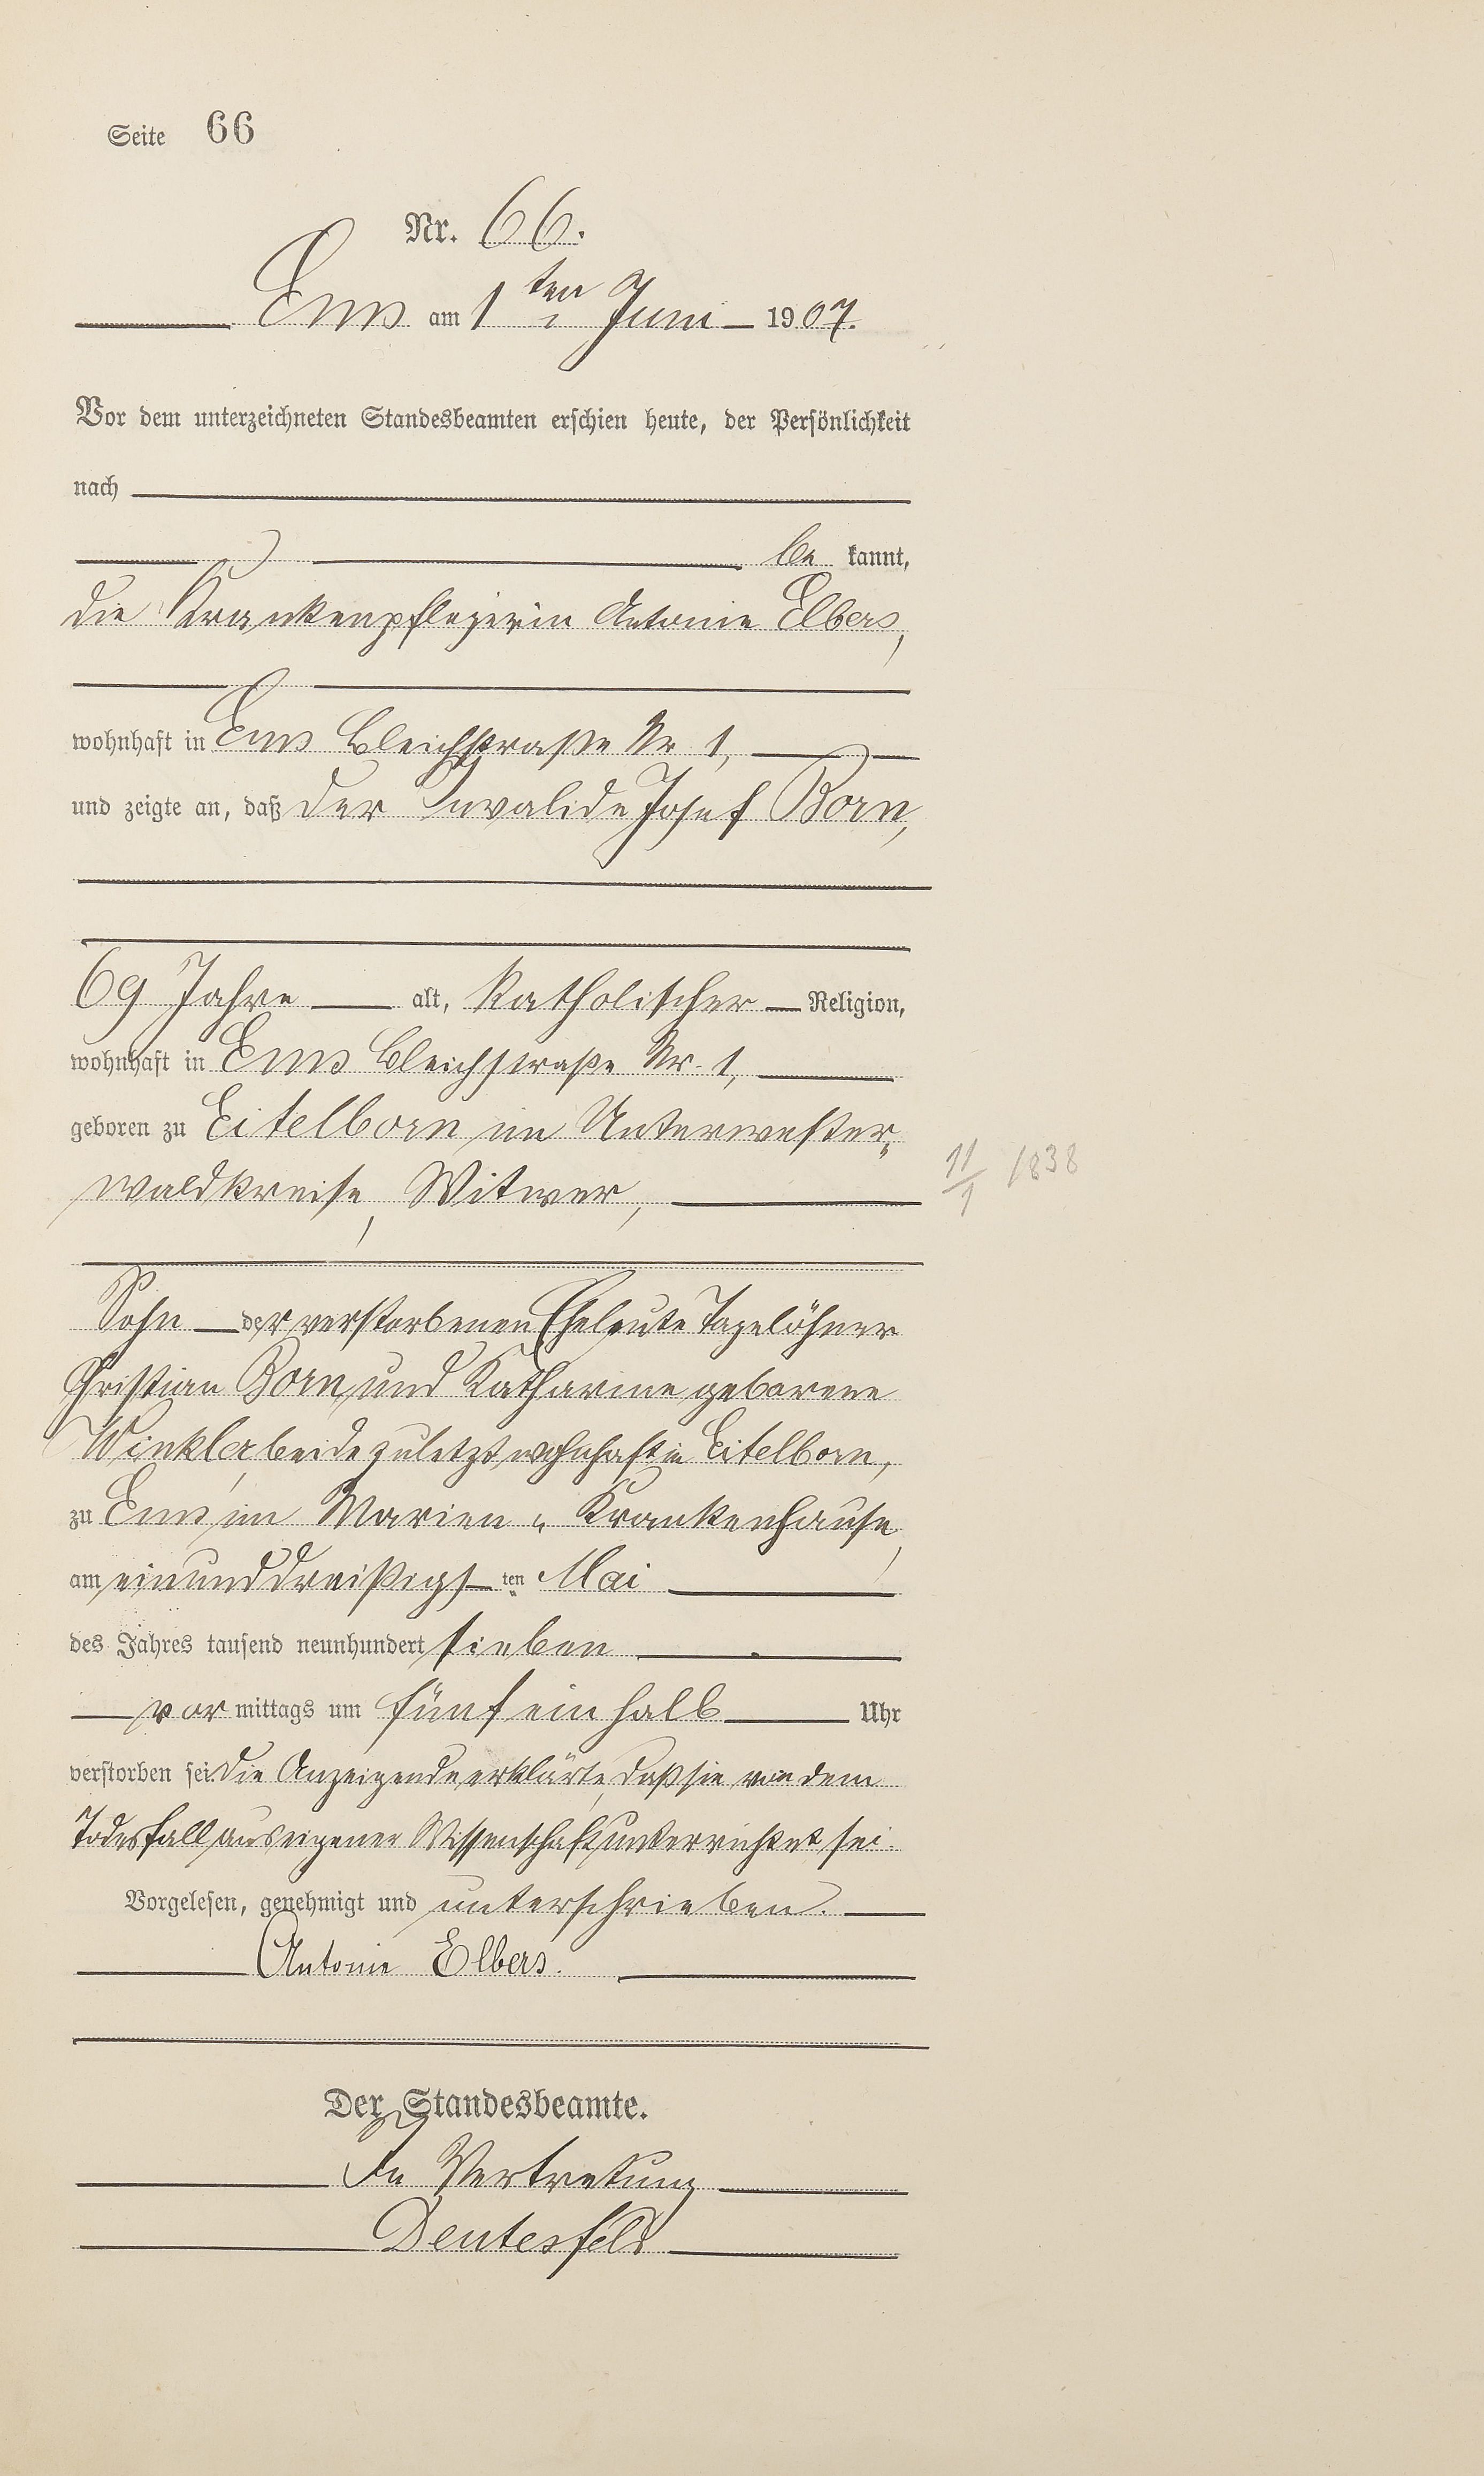 Seite 66
Nr. 66.
Ems am 1ten Juni 1907.
Vor dem unterzeichneten Standesbeamten erschien heute, der Persönlichkeit
nach
be kannt,
die Krankenpflegerin Antonie Elbers,
wohnhaft in Ems Bleichstraße Nr. 1,
und zeigte an, daß der Invalide Josef Born,
69 Jahre alt, katholischer Religion,
wohnhaft in Ems Bleichstraße Nr. 1,
geboren zu Eitelborn im Unterwester-
waldkreise, Witwer,
11/1 1838
Sohn der verstorbenen Eheleute Tagelöhner
Christian Born und Katharine geborene
Winkler, beide zuletzt wohnhaft in Eitelborn,
zu Ems im Marien-Krankenhause,
am einunddreißigsten Mai
des Jahres tausend neunhundert sieben
vormittags um fünf ein halb Uhr
verstorben sei. Die Anzeigende erklärte, daß sie von dem
Todesfall aus eigener Wissenschaft unterrichtet sei.
Vorgelesen, genehmigt und unterschrieben.
Antonie Elbers.
Der Standesbeamte.
In Vertretung
Deutesfeld